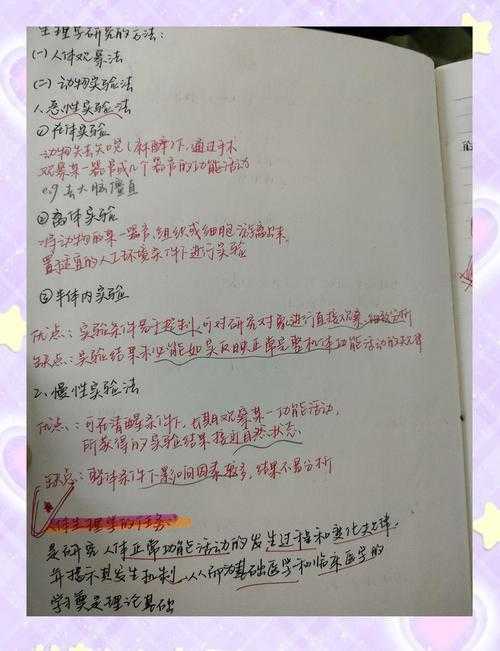 生理学研究的方法:
(一)人体观察法
(二)动物实验法
1.急性实验法
①在体实验
动物失去知觉(麻醉)下,通过手术
观察某一器官或几个器官的功能活动
eg去大脑僵直
②离体实验
将动物的某一器官,组织或细胞游离出来,
置适宜的人工环境条件下进行实验
③半体内实验
优点:实验条件易于控制,可对研究对象进行直接观察、细致分析
缺点:实验结果不能如实反映正常完整机体功能活动的规律
2.慢性实验法
优点:可在清醒条件下,长期观察某一功能活动,
所获得的实验结果接近自然状态.
缺点:整体条件下影响因素较多,结果不易分析
人体生理学的任务
是研究人体正常功能活动的发生过程和变化规律,
并揭示其发生机制,从而为基础医学和临床医学的
学习奠定理论基础
能